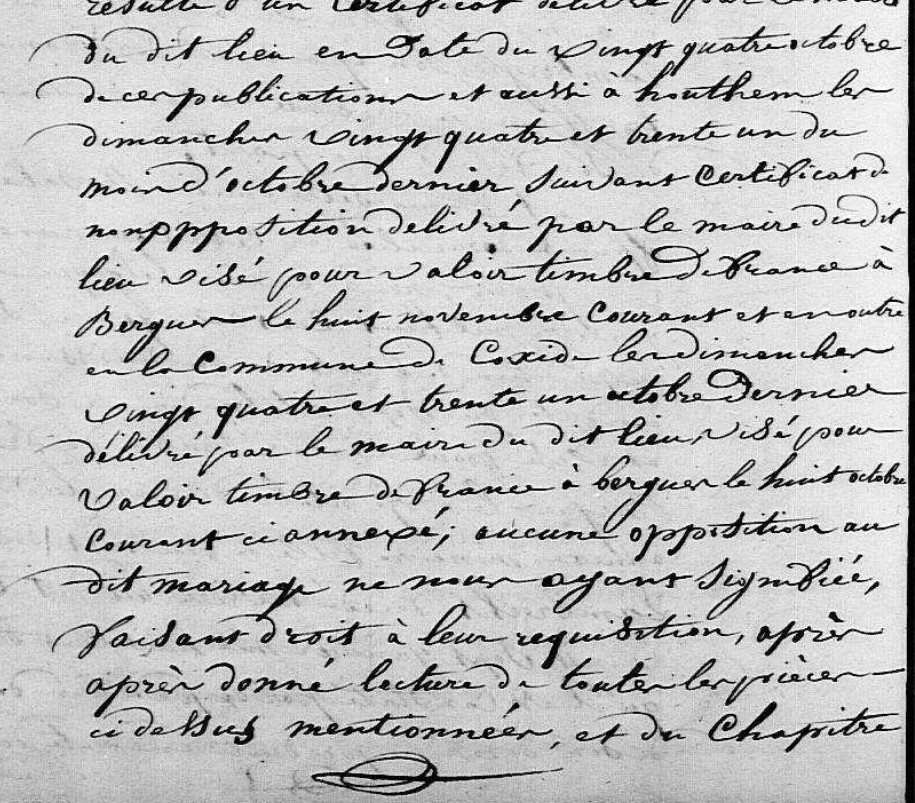 résulte d'un certificat délivré par le maire
du dit lieu en Date du vingt quatre octobre
de ces publications et aussi à houthem les
dimanches vingt quatre et trente un du
mois d'octobre dernier suivant Certificat de
non opposition delivré par le maire du dit
lieu visé pour valoir timbre de france à
Bergues le huit novembre Courant et en outre
en la Commune de Coxide les dimanches
vingt quatre et trente un octobre Dernier
délivré par le maire du dit lieu, visé pour
valoir timbre de france à bergues le huit octobre
Courant ci annexé; aucune opposition au
dit mariage ne nous ayant signifiée,
faisant droit à leur requisition, après
après donné lecture de toutes les pièces
ci dessus mentionnées, et du Chapitre